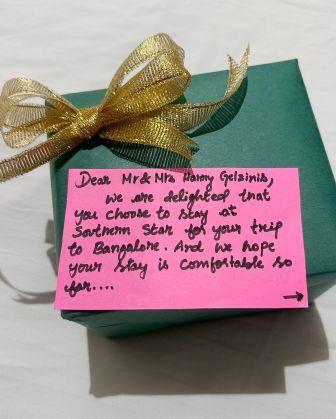 Dear Mr & Mrs Harry Gelsinis,
we are delighted that
you choose to stay at
Southern Star for your trip
to Bangalore. And we hope
your stay is comfortable so
far....
→